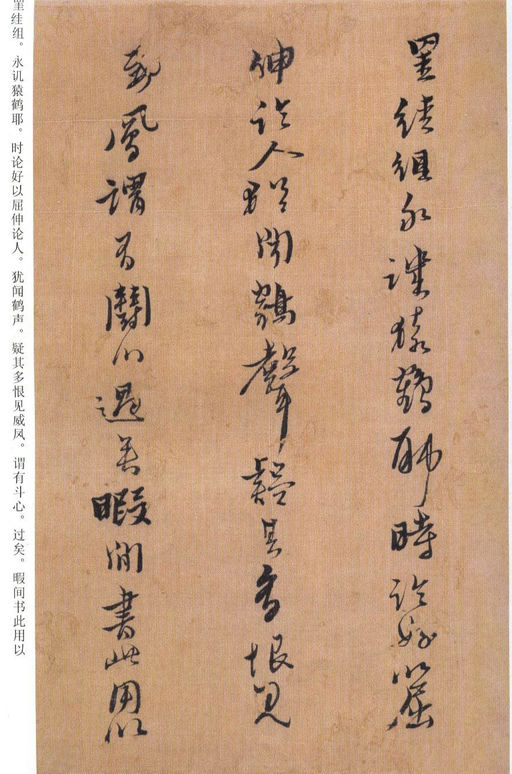 罣絓组永讥猿鹤耶時论好以屈
伸论人犹闻鶴聲疑其多恨见
威鳳謂有鬭心過矣暇间書此用以
罣絓组。永讥猿鹤耶。时论好以屈伸论人。犹闻鹤声。疑其多恨见威凤。谓有斗心。过矣。暇间书此用以